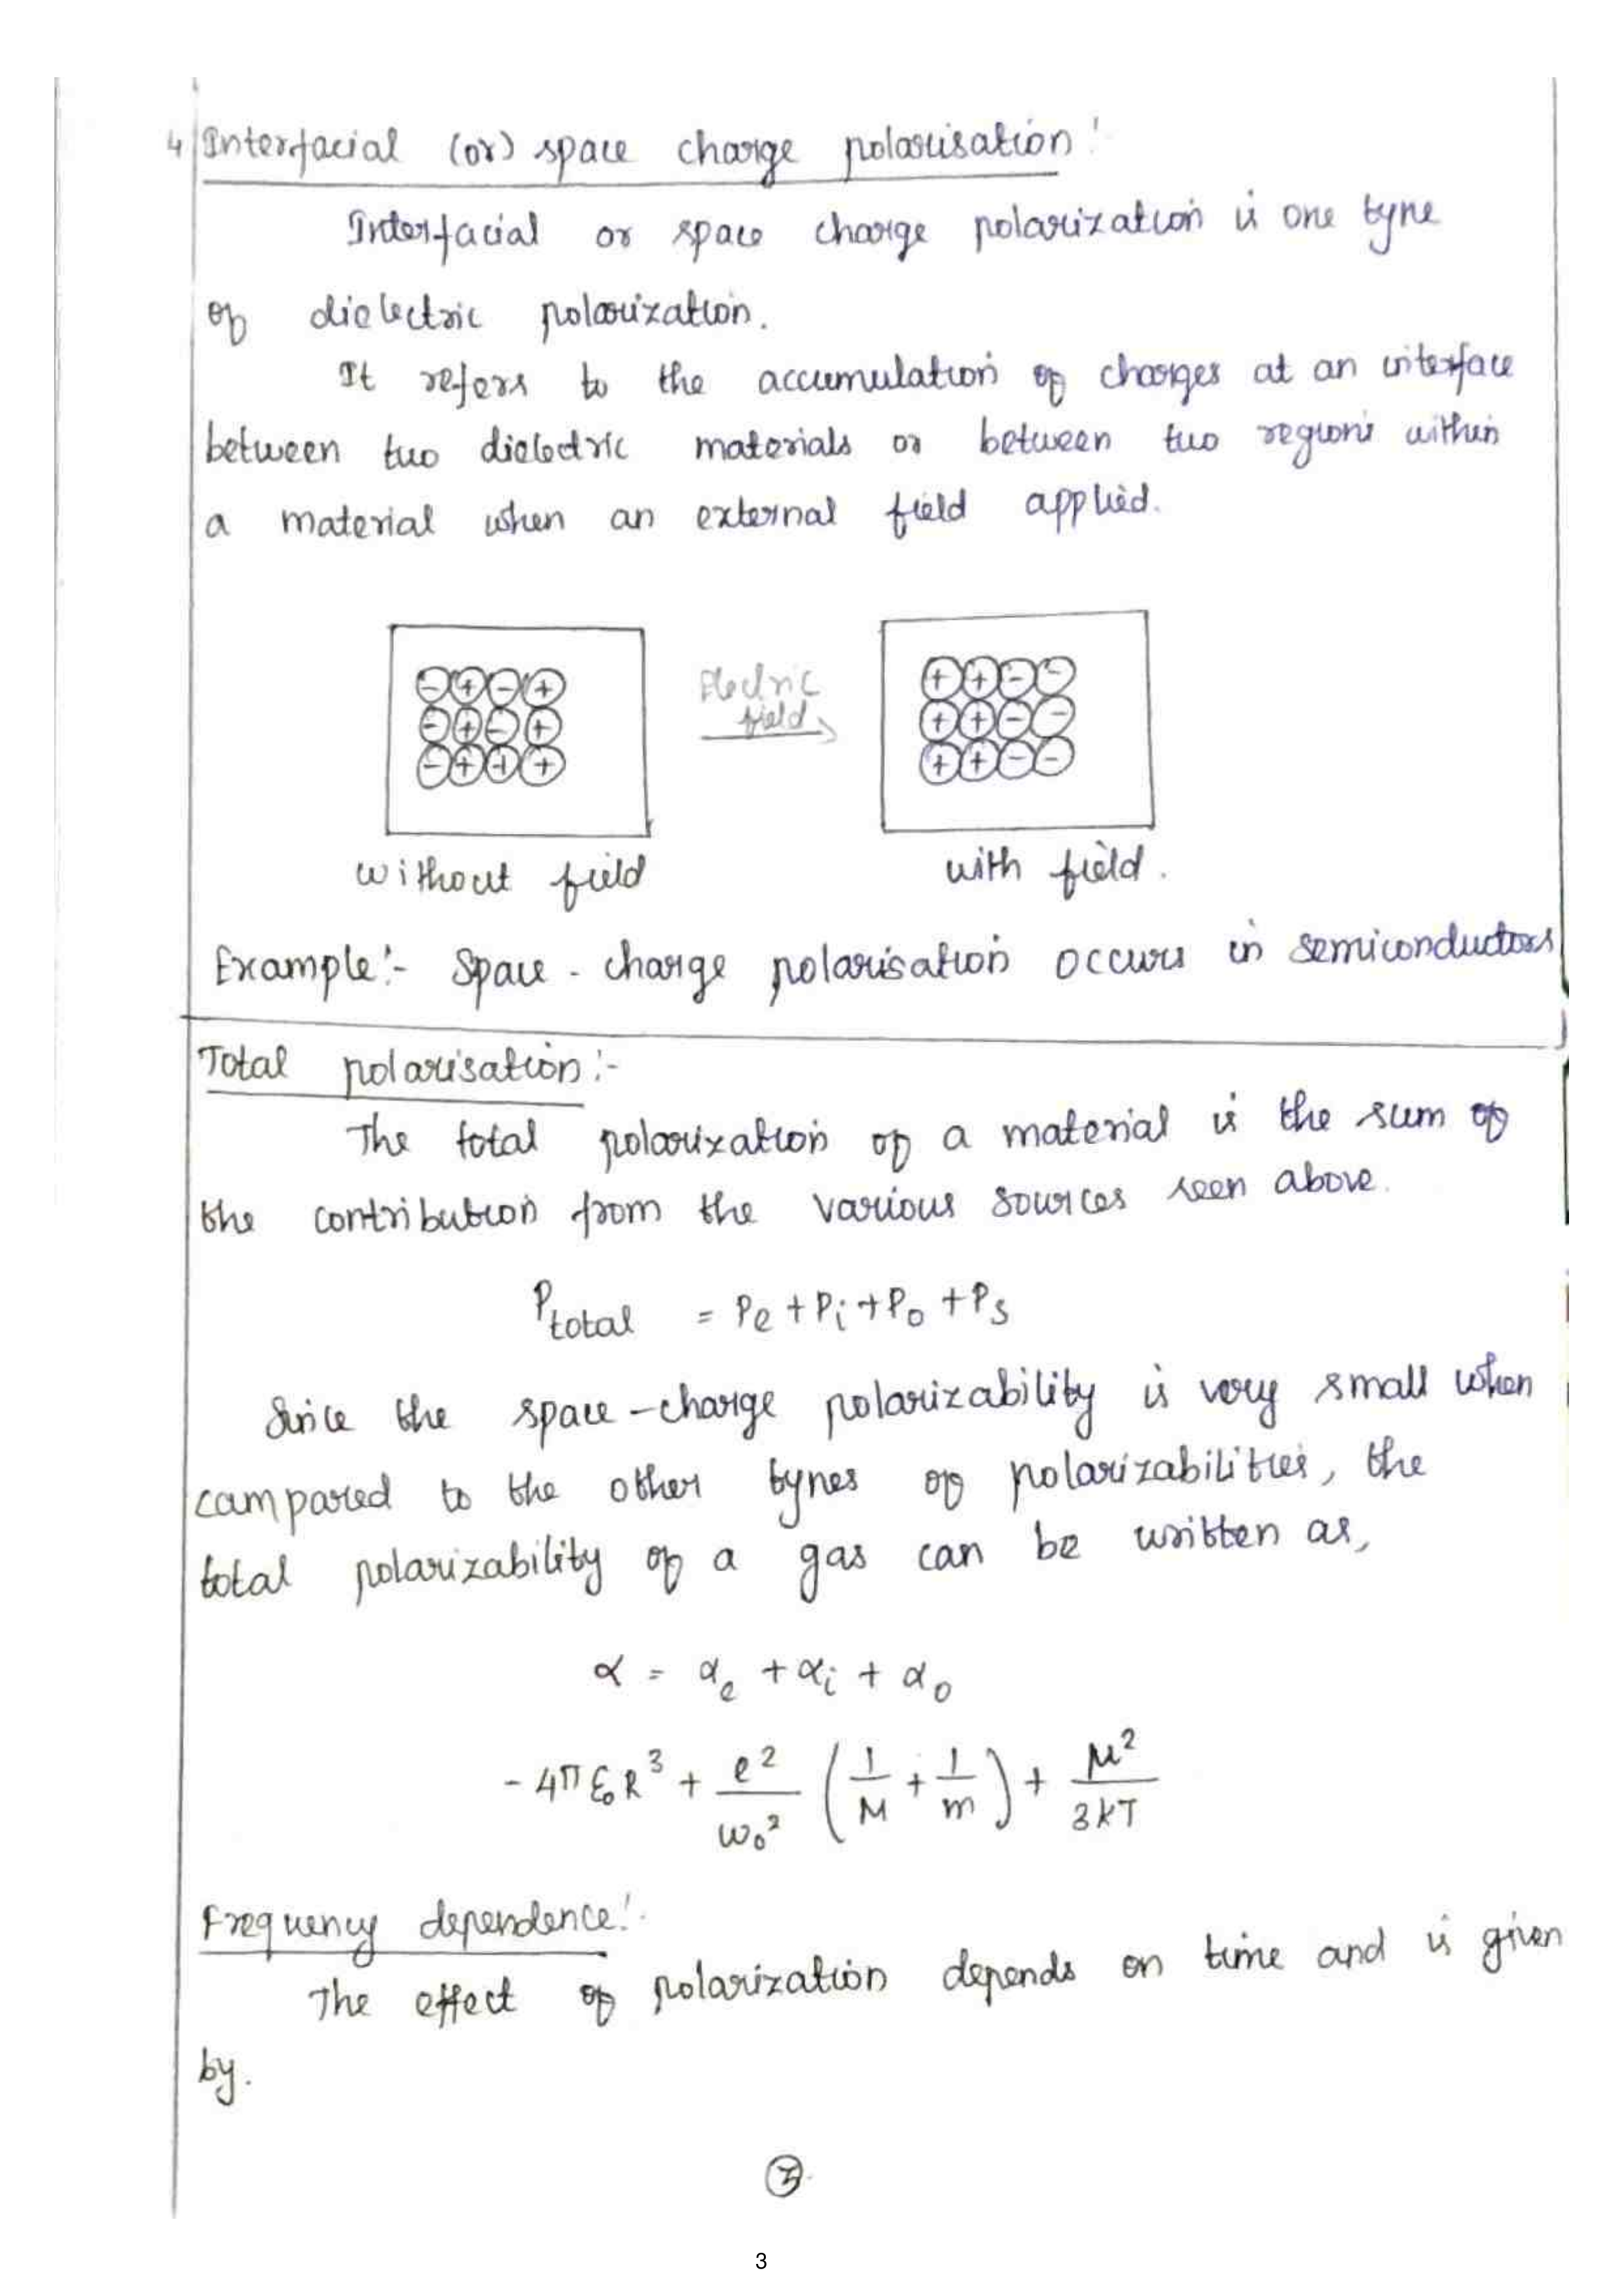 4 Interfacial (or) space charge polarisation:
Interfacial or space charge polarization is one type
of dielectric polarization.
It refers to the accumulation of charges at an interface
between two dielectric materials or between two regions within
a material when an external field applied.
- + - +
- + - +
- + + +
Electric
field
+ + - -
+ + - -
+ + - -
without field
with field.
Example:- Space - charge polarisation occurs in semiconductors
Total polarisation:-
The total polarization of a material is the sum of
the contribution from the various sources seen above.
P total = Pe + Pi + Po + Ps
Since the space-charge polarizability is very small when
compared to the other types of polarizabilities, the
total polarizability of a gas can be written as,
α = αe + αi + αo
- 4π ε₀ R³ + e²/ω₀² (1/M + 1/m) + μ²/3kT
Frequency dependence:
The effect of polarization depends on time and is given
by.
3
3